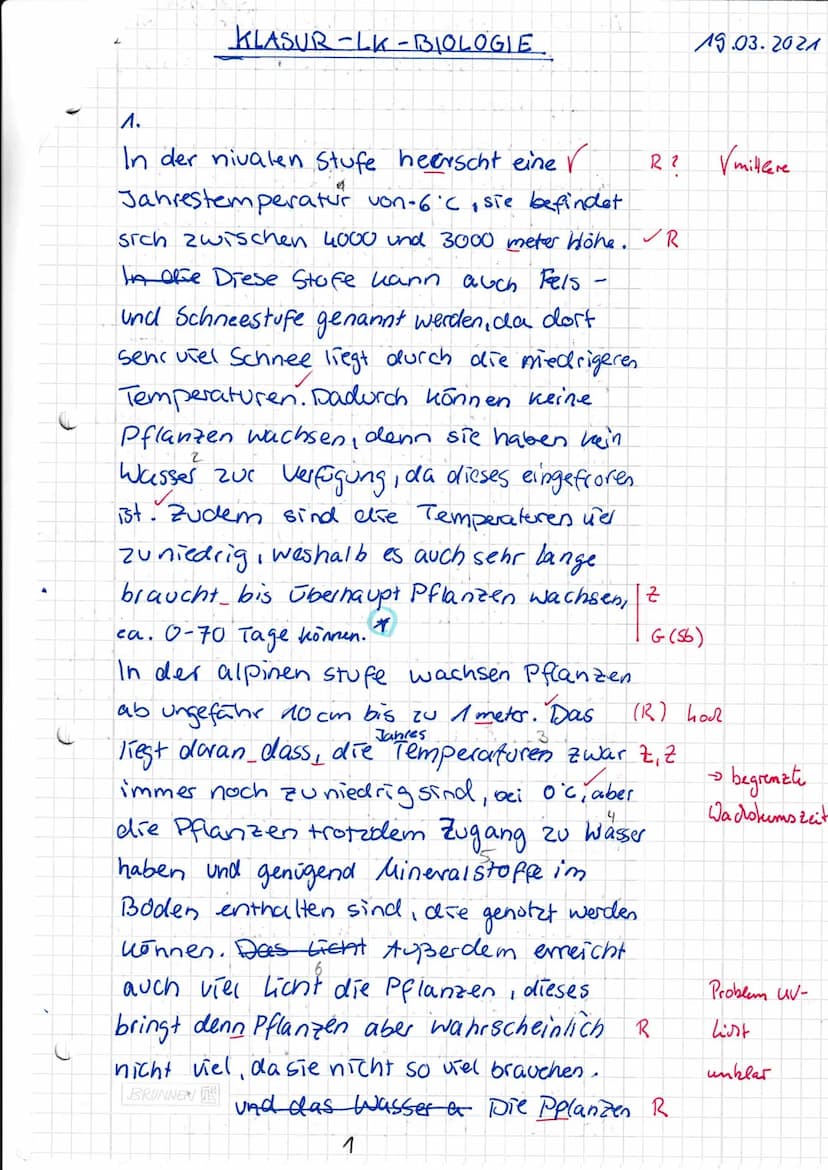 KLASUR-LK-BIOLOGIE 19.03.2021
1.
In der nivalen Stufe heerscht eine √ R? √ mittlere
Jahrestemperatur von -6°C, sie befindet
sich zwischen 4000 und 3000 meter Höhe. ✓ R
In die Diese Stufe kann auch Fels-
und Schneestufe genannt werden, da dort
sehr viel Schnee liegt durch die niedrigeren
Temperaturen. ✓ Dadurch können keine
Pflanzen wachsen, denn sie haben kein
Wasser zur Verfügung, da dieses eingefroren
2
ist. ✓ Zudem sind die Temperaturen viel
zu niedrig, weshalb es auch sehr lange
braucht_bis überhaupt Pflanzen wachsen, Z
ca. 0-70 Tage können. * G (Sb)
In der alpinen stufe wachsen Pflanzen
ab ungefähr 10 cm bis zu 1 meter. ✓ Das (R) hoch
Jahres 3
liegt daran_dass, die Temperaturen zwar Z, Z
→ begrenzte
immer noch zu niedrig sind, bei 0°C, ✓ aber
Wachstumszeit
4
die Pflanzen trotzdem Zugang zu Wasser
5
haben und genügend Mineralstoffe im
Boden enthalten sind, die genutzt werden
können. Das Licht Außerdem erreicht
6
auch viel Licht die Pflanzen, dieses Problem UV-
bringt denn Pflanzen aber wahrscheinlich R Licht
nicht viel, da sie nicht so viel brauchen. unklar
BRUNNEN
und das Wasser a Die Pplanzen R
1